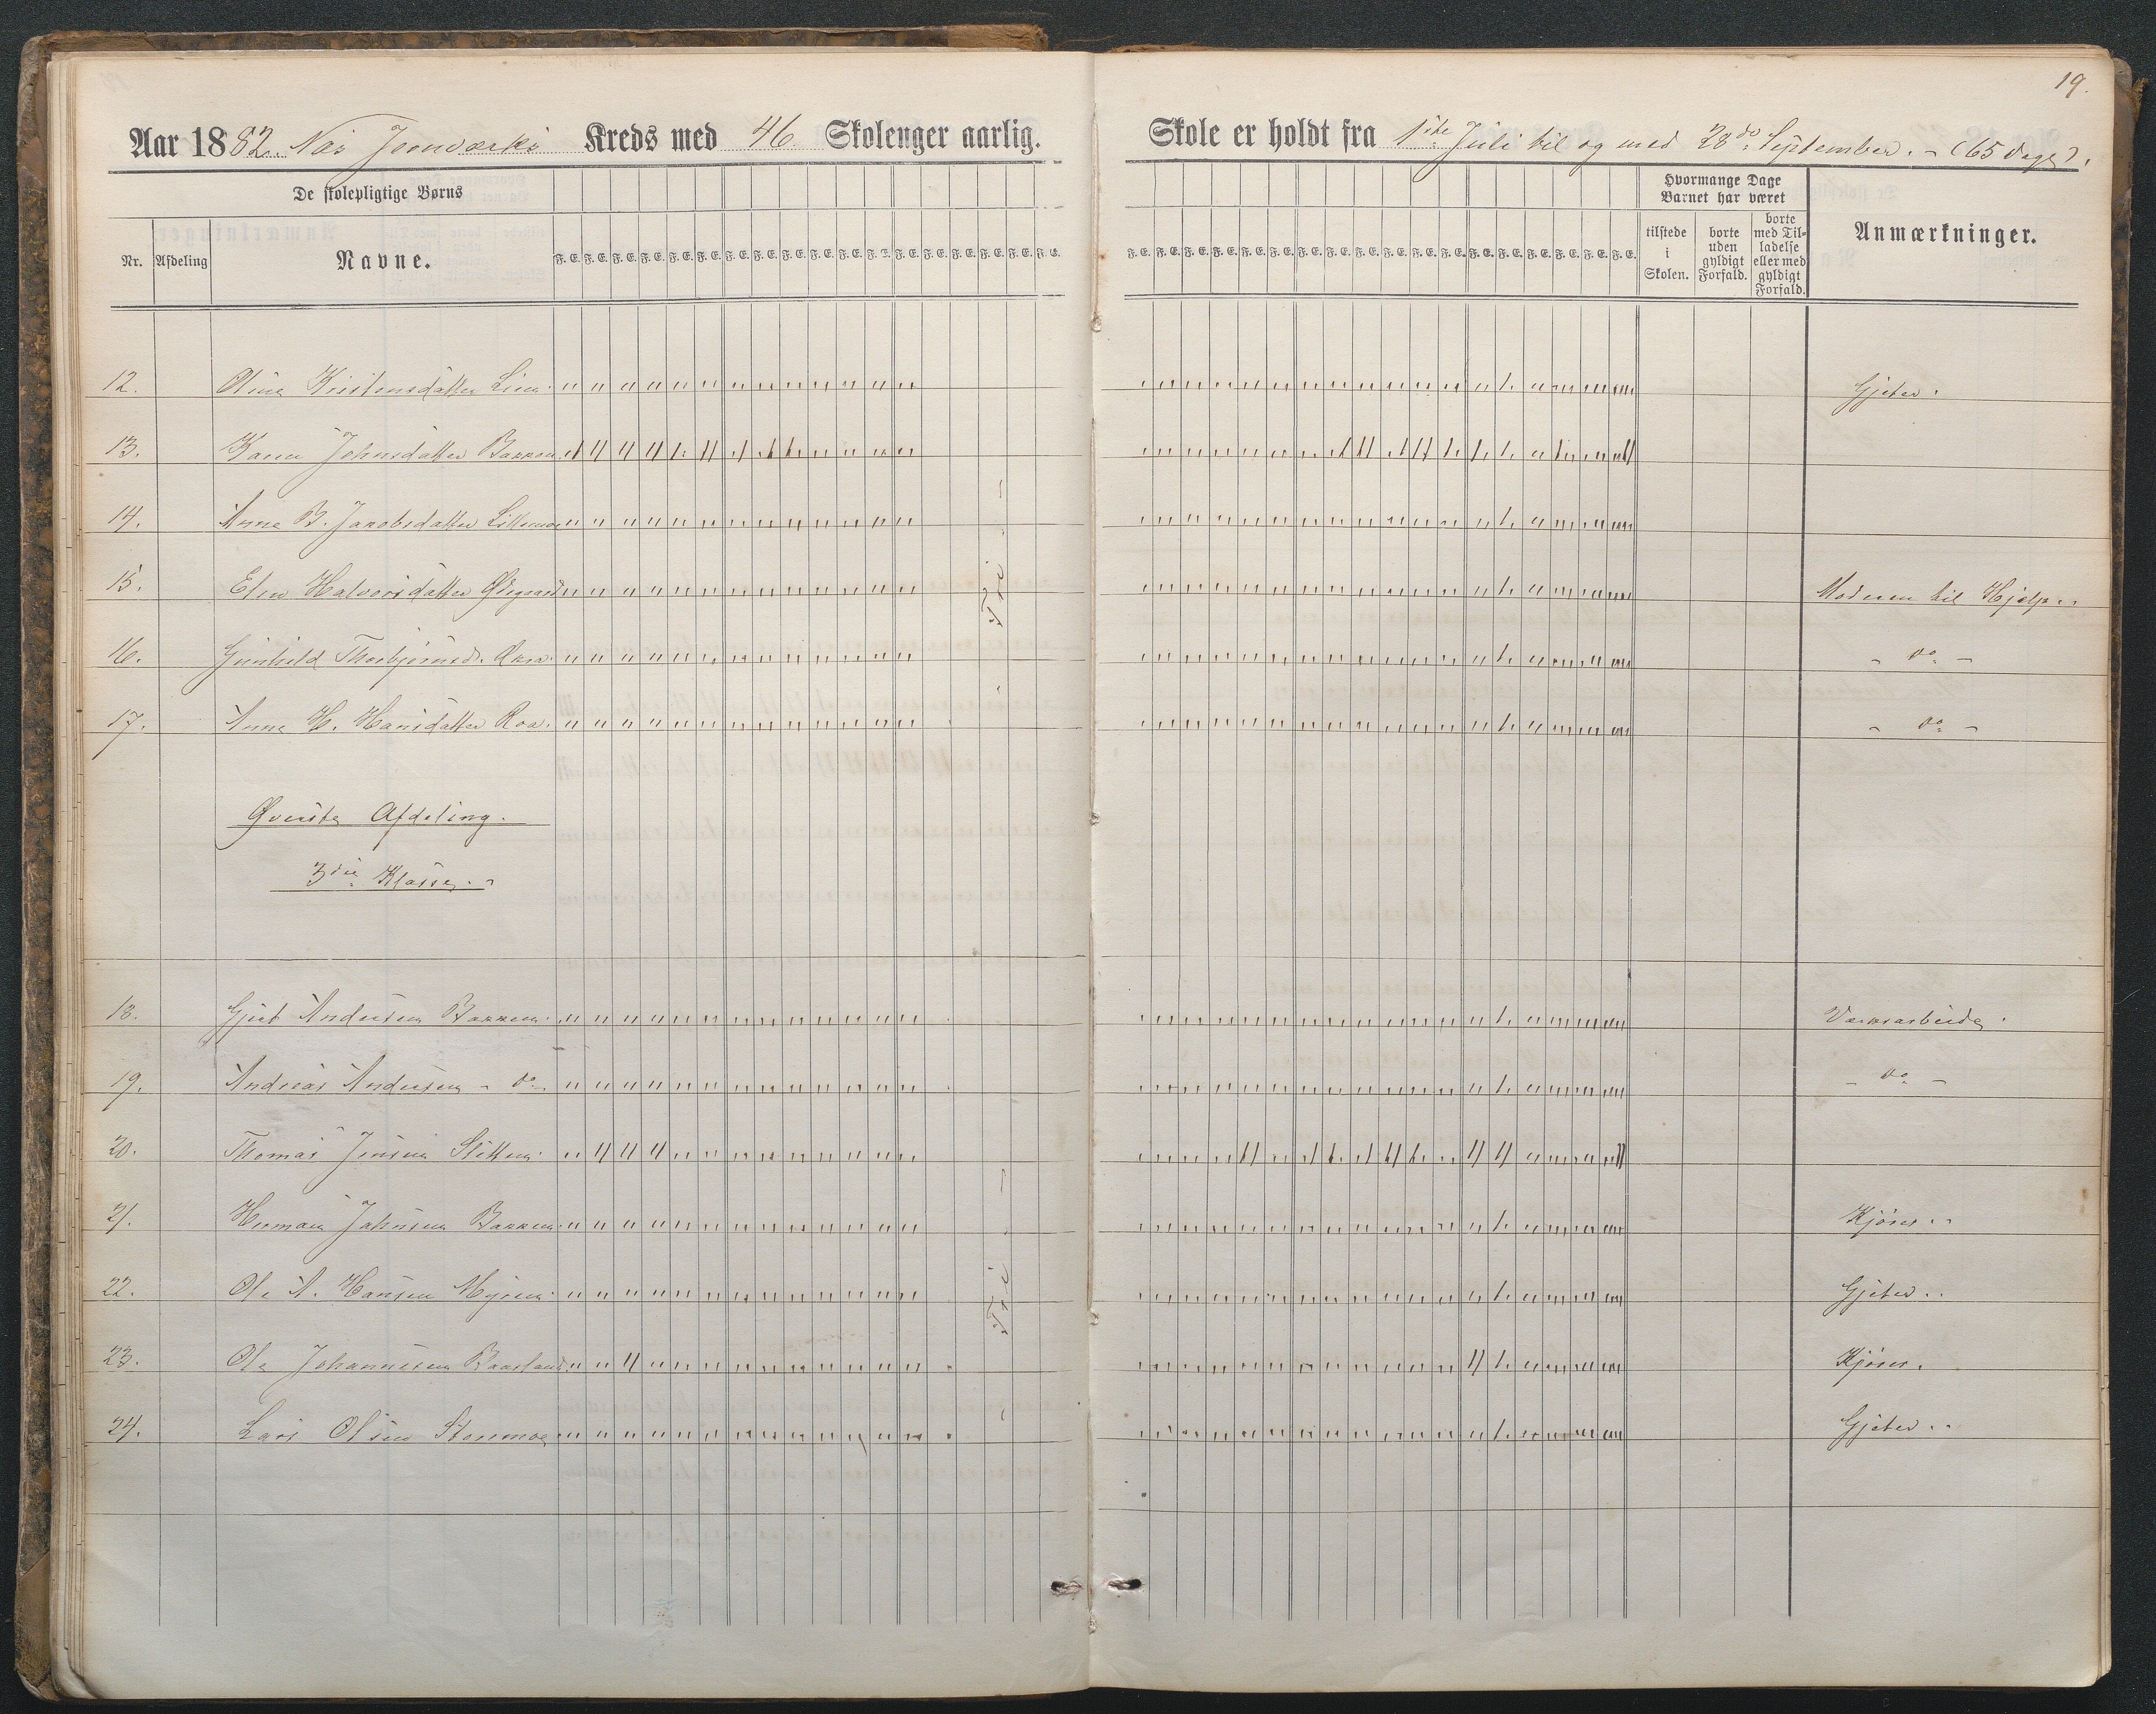 19.
Aar 1882. Næs Jernværks Kreds med 46 Skolenger aarlig. Skole er holdt fra 1ste Juli til og med 28de September. - (65 dage).
De skolepligtige Børns
Hvormange Dage Barnet har været
Nr. Afdeling Navne. F. E. F. E. F. E. F. E. F. E. F. E. F. E. F. E. F. E. F. E. F. E. F. T. F. E. F. E. F. E. F. E. F. E. F. E.
F. E. F. E. F. E. F. E. F. E. F. E. F. E. F. E. F. E. F. E. F. E. F. E. F. E. F. E. F. E. F. E. F. E. F. E.
tilstede i Skolen. borte uden gyldigt Forfald. borte med Tilladelse eller med gyldigt Forfald. Anmærkninger.
12. Oline Kirstensdatter Lien. Gjeter.
13. Karen Johnsdatter Bakken
14. Anne B. Jacobsdatter Lillemoe
15. Elen Halvorsdatter Øigaard Moderen til Hjelp.
16. Gunhild Thorbjørnsd. - do -
17. Anne H. Hansdatter Roa. - do -
Fri
Øverste Afdeling.
3die Klasse.
18. Gjert Andersen Bakken. Værksarbeide.
19. Andreas Andersen - do - - do -
20. Thomas Jensen Sletten.
21. Herman Johnsen Bakken Kjører.
22. Ole A. Hansen Myren. Gjeter.
23. Ole Johannesen Baasland Kjører.
24. Lars Olsen Storemoe Gjeter.
Fri